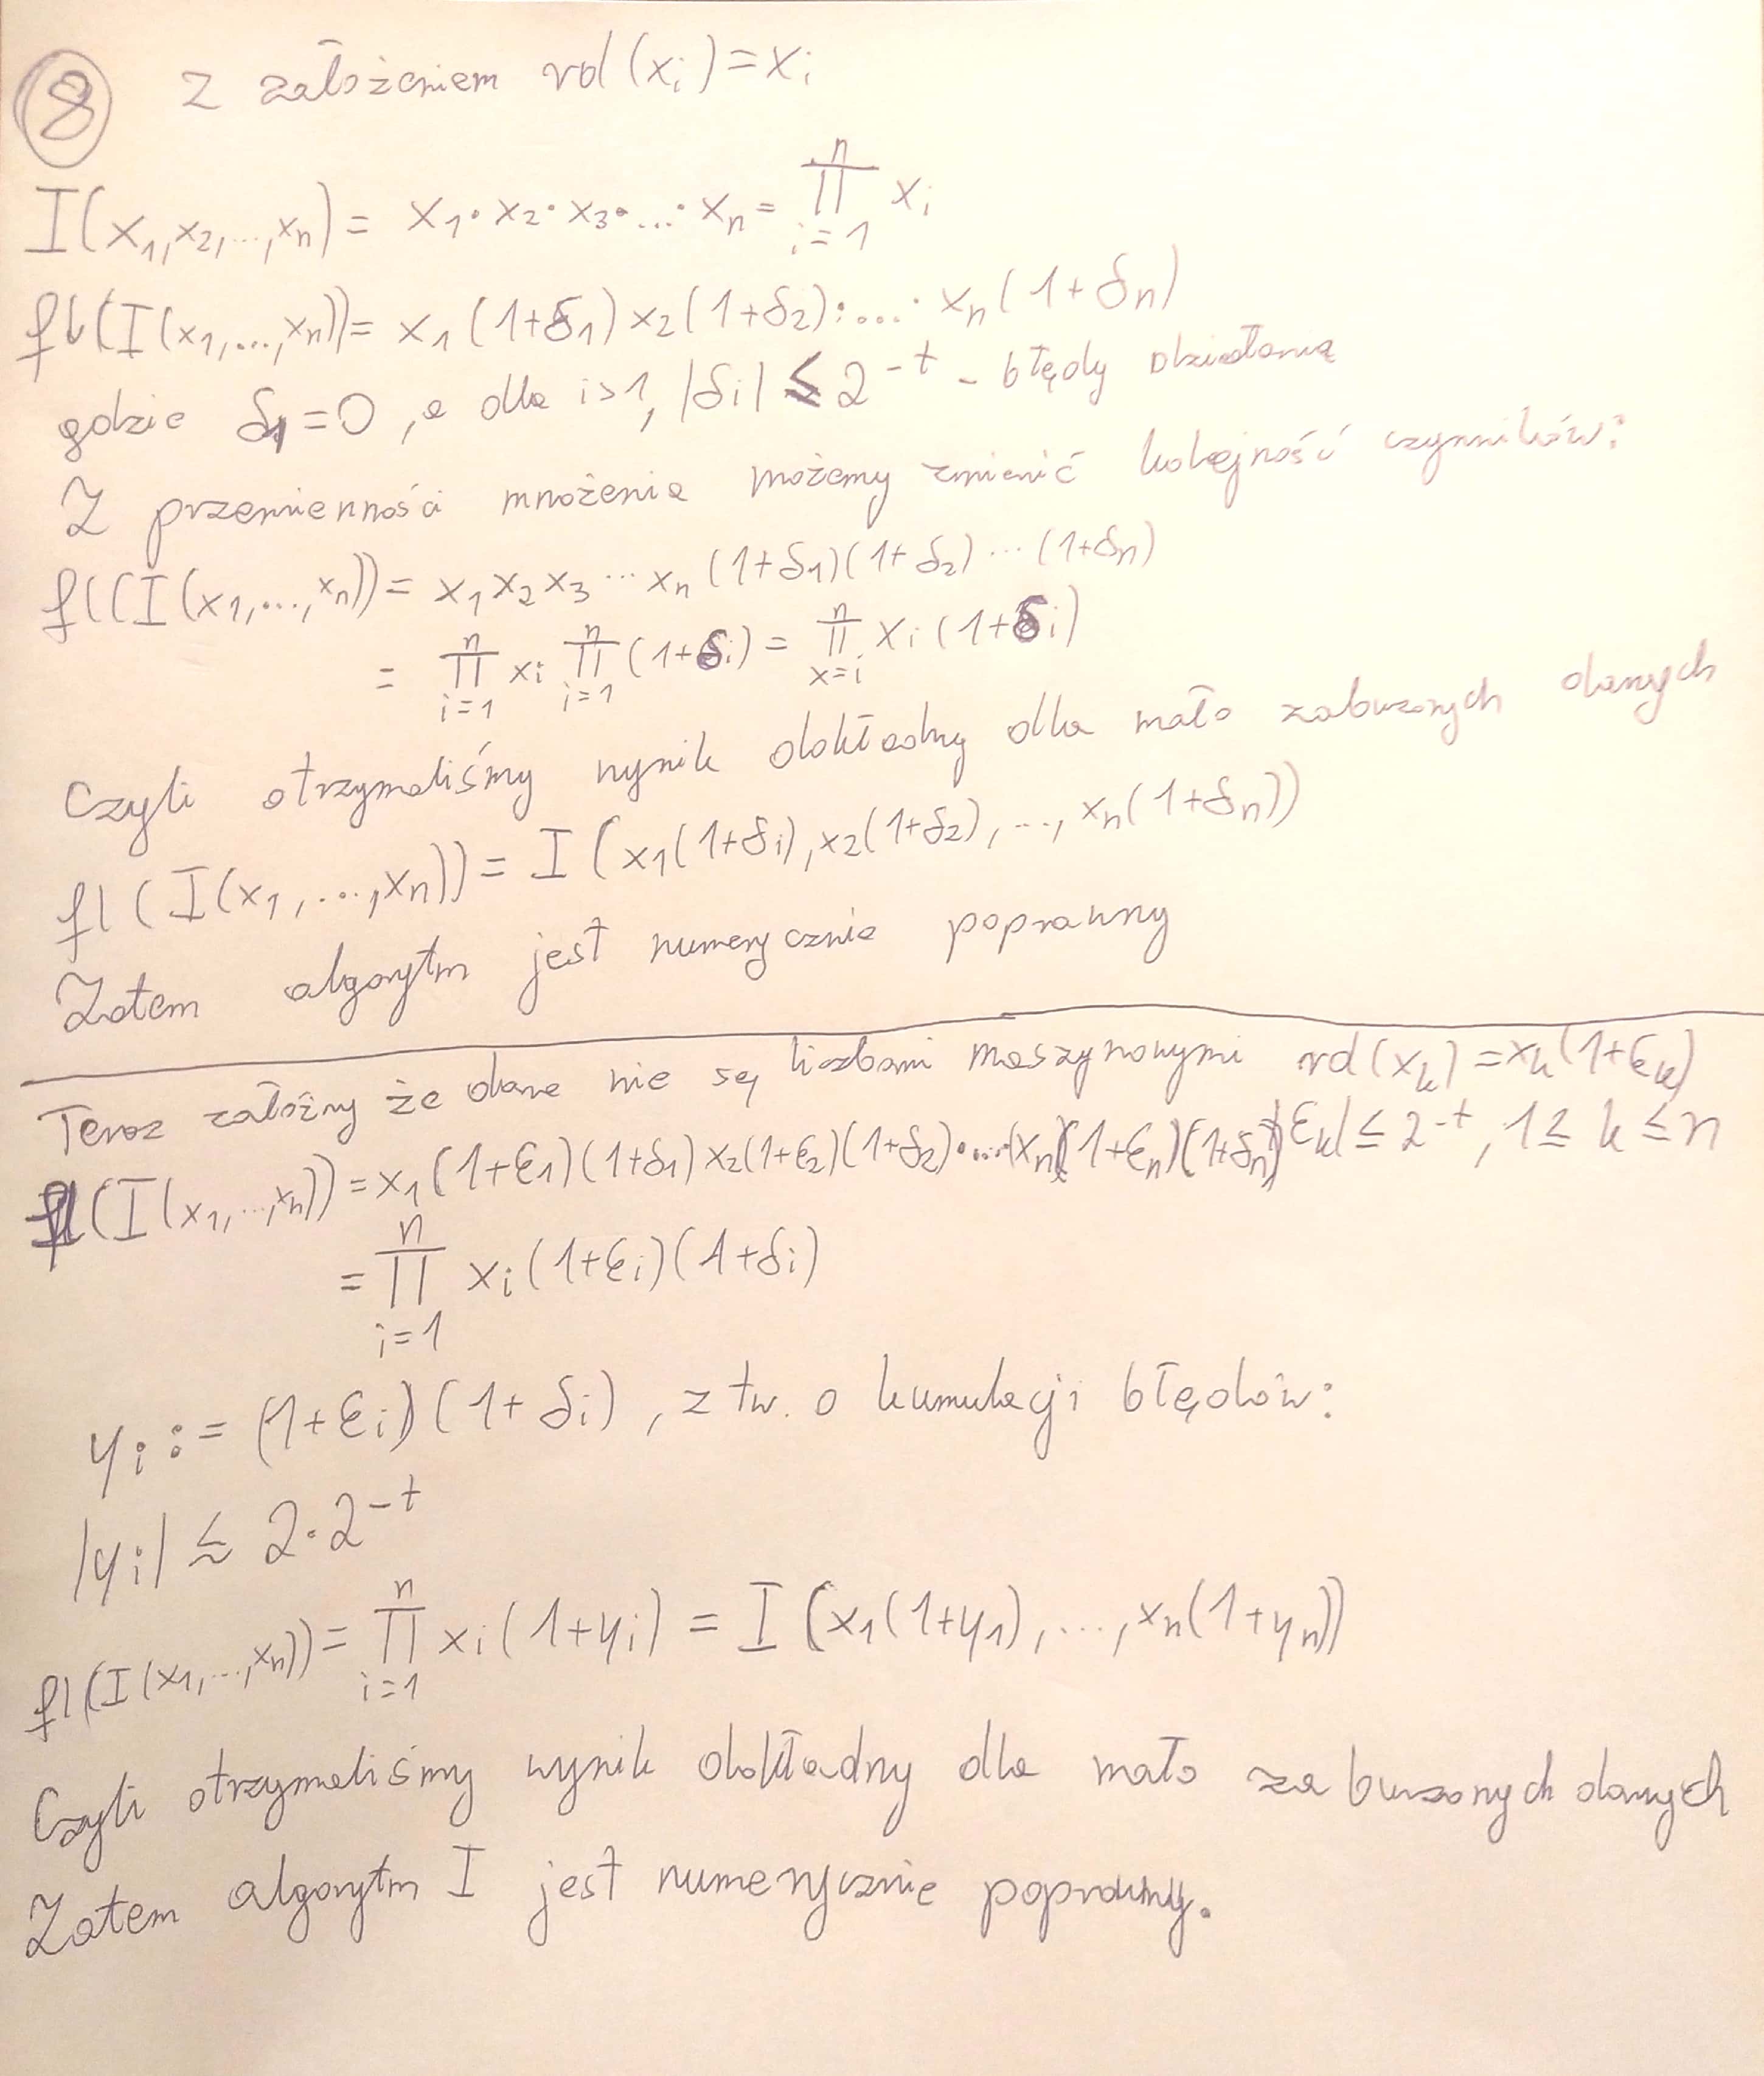 8 Z założeniem rd(x_i) = x_i
I(x_1, x_2, ..., x_n) = x_1 · x_2 · x_3 · ... · x_n = ∏_{i=1}^{n} x_i
fl(I(x_1, ..., x_n)) = x_1 (1+δ_1) x_2 (1+δ_2) · ... · x_n (1+δ_n)
gdzie δ_1 = 0, a dla i>1, |δ_i| ≤ 2^{-t} - błędy działania
Z przemienności mnożenia możemy zmienić kolejność czynników:
fl((I(x_1, ..., x_n)) = x_1 x_2 x_3 ... x_n (1+δ_1)(1+δ_2) ... (1+δ_n)
= ∏_{i=1}^{n} x_i ∏_{i=1}^{n} (1+δ_i) = ∏_{x=i}^{n} x_i (1+δ_i)
Czyli otrzymaliśmy wynik dokładny dla mało zaburzonych danych
fl(I(x_1, ..., x_n)) = I(x_1(1+δ_i), x_2(1+δ_2), ..., x_n(1+δ_n))
Zatem algorytm jest numerycznie poprawny
Teraz załóżmy że dane nie są liczbami maszynowymi rd(x_k) = x_k(1+ε_k)
|ε_k| ≤ 2^{-t}, 1 ≤ k ≤ n
fl(I(x_1, ..., x_n)) = x_1(1+ε_1)(1+δ_1) x_2(1+ε_2)(1+δ_2) · ... · (x_n)(1+ε_n)(1+δ_n)
= ∏_{i=1}^{n} x_i (1+ε_i)(1+δ_i)
y_i := (1+ε_i)(1+δ_i), z tw. o kumulacji błędów:
|y_i| ≲ 2·2^{-t}
fl(I(x_1, ..., x_n)) = ∏_{i=1}^{n} x_i (1+y_i) = I(x_1(1+y_1), ..., x_n(1+y_n))
Czyli otrzymaliśmy wynik dokładny dla mało zaburzonych danych
Zatem algorytm I jest numerycznie poprawny.